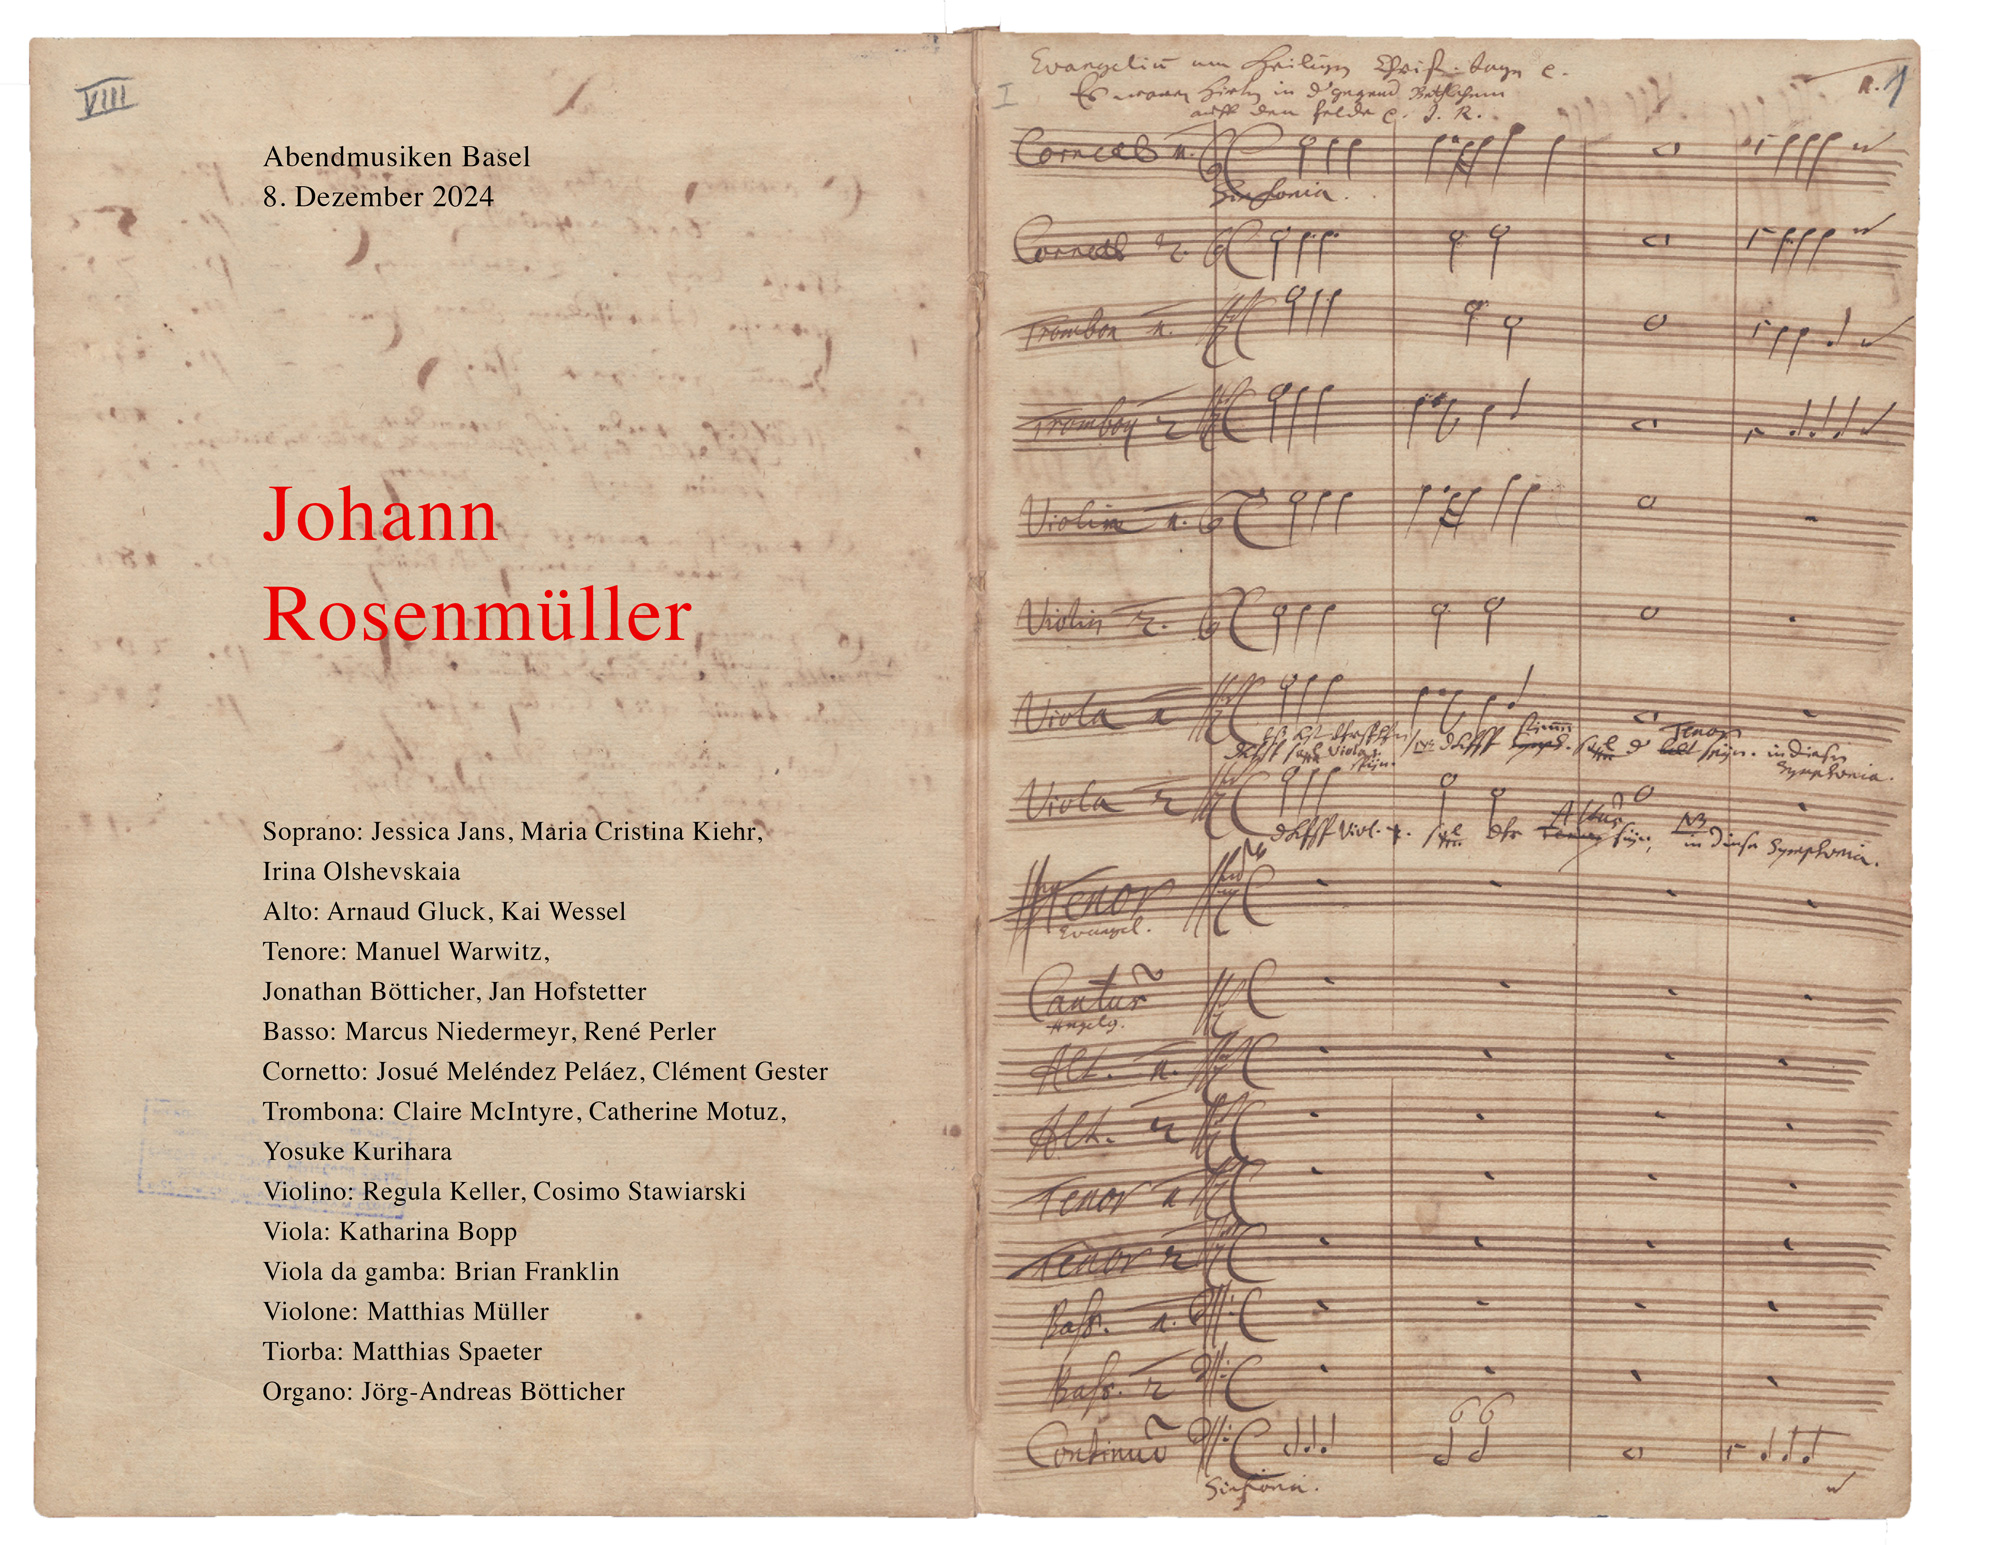 VIII
Abendmusiken Basel
8. Dezember 2024
Johann
Rosenmüller
Soprano: Jessica Jans, Maria Cristina Kiehr,
Irina Olshevskaia
Alto: Arnaud Gluck, Kai Wessel
Tenore: Manuel Warwitz,
Jonathan Bötticher, Jan Hofstetter
Basso: Marcus Niedermeyr, René Perler
Cornetto: Josué Meléndez Peláez, Clément Gester
Trombona: Claire McIntyre, Catherine Motuz,
Yosuke Kurihara
Violino: Regula Keller, Cosimo Stawiarski
Viola: Katharina Bopp
Viola da gamba: Brian Franklin
Violone: Matthias Müller
Tiorba: Matthias Spaeter
Organo: Jörg-Andreas Bötticher
I
Es waren Hirten in d' gegend Bethlehem
auff dem felde e. J. R.
Sinfonia.
Trombon
Trombon 2
Violin
Violin 2.
Viola
Tenor
in dieser
Symphonia.
Viola 2
Altus
NB
in dieser Symphonia.
Tenor
Evangel.
Cantus
Angelg.
Alt.
Alt. 2
Tenor
Tenor 2
Bass.
Bass. 2
Continuo
6 6
Sinfoni.